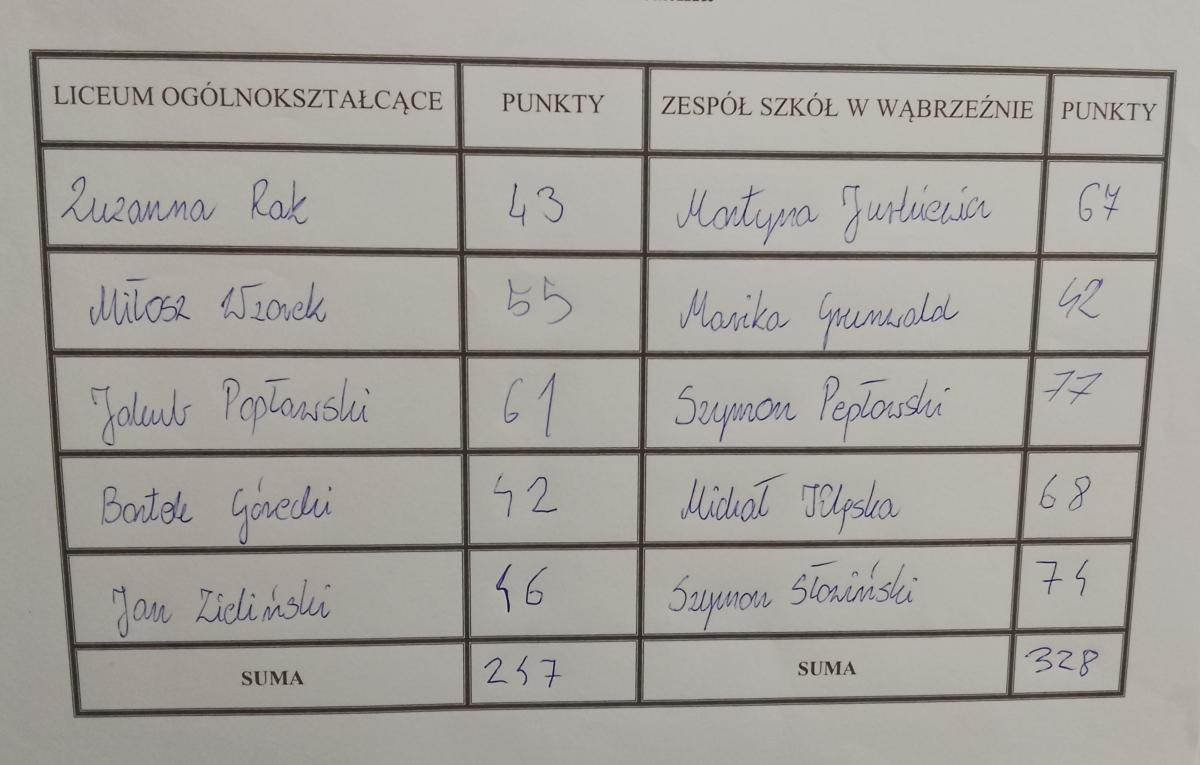 LICEUM OGÓLNOKSZTAŁCĄCE PUNKTY ZESPÓŁ SZKÓŁ W WĄBRZEŹNIE PUNKTY
Zuzanna Rak 43 Martyna 67
Miłosz Wzorek 55 Marika Grunwald 42
Jakub Popławski 61 Szymon Pepłowski 77
Bartek Górecki 42 Michał 68
Jan Zieliński 46 Szymon Słoziński 74
SUMA 247 SUMA 328